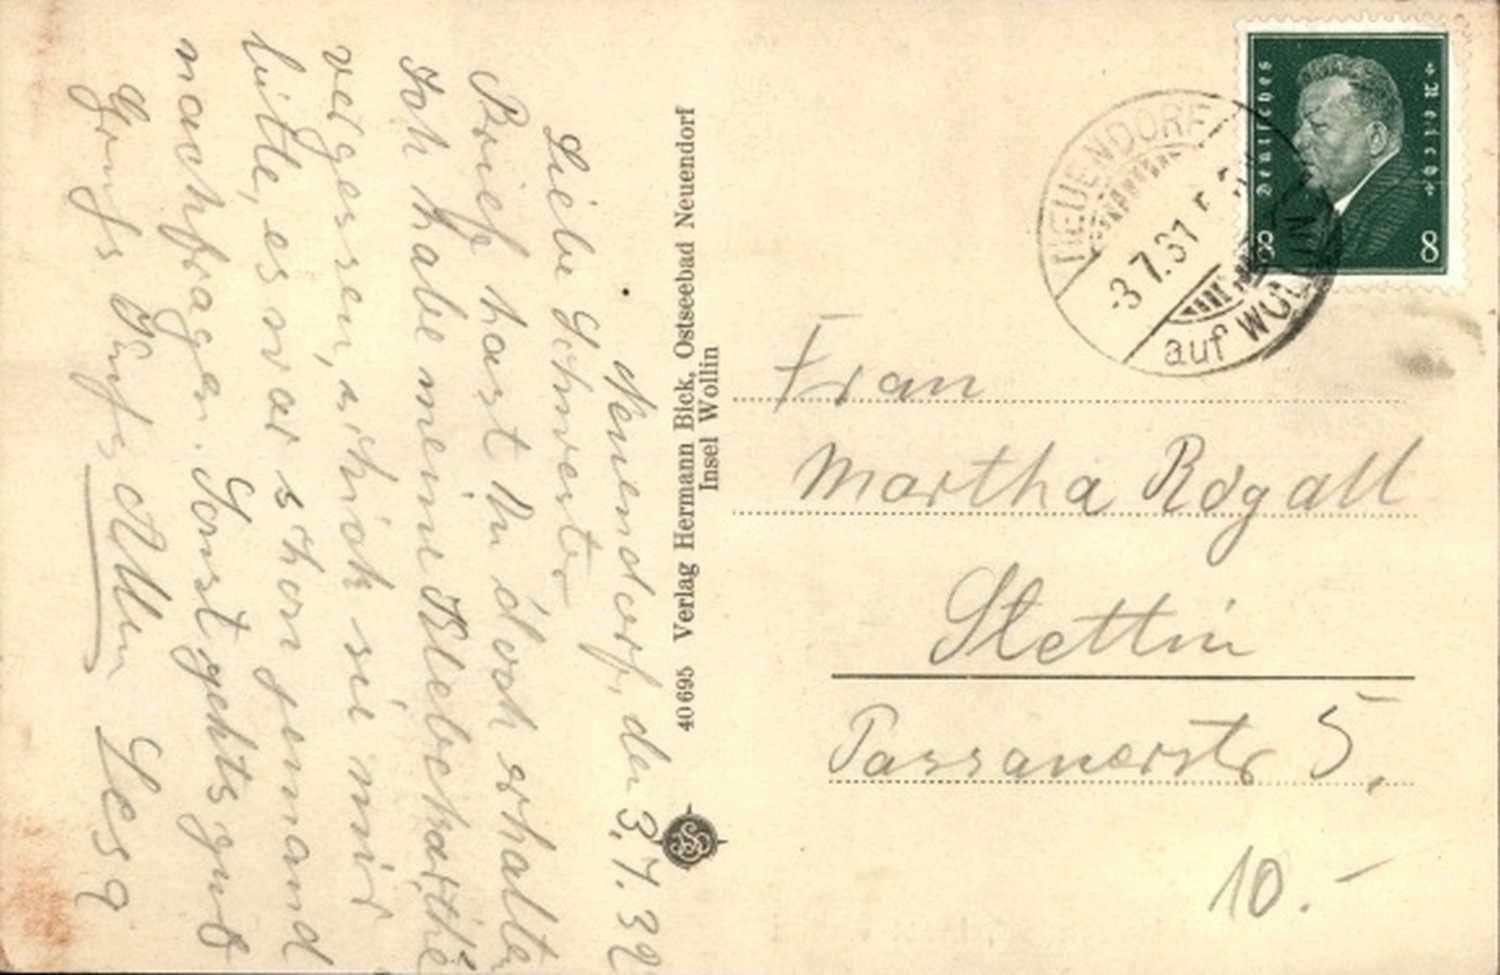 Neuendorf, den 3.7.32
Liebe Schwester
Brief hast Du doch erhalten
Ich habe meine Klebekarthe
vergessen, schick sie mir
bitte, es war schon jemand
nachfragen. Sonst gehts gut
Gruß Allen
40695 Verlag Hermann Bick, Ostseebad Neuendorf
Insel Wollin
Deutsches Reich
8 8
NEUENDORF
-3.7.31
auf WOLLIN
Frau
Martha Rogall
Stettin
Passauerstr 5.
10.-